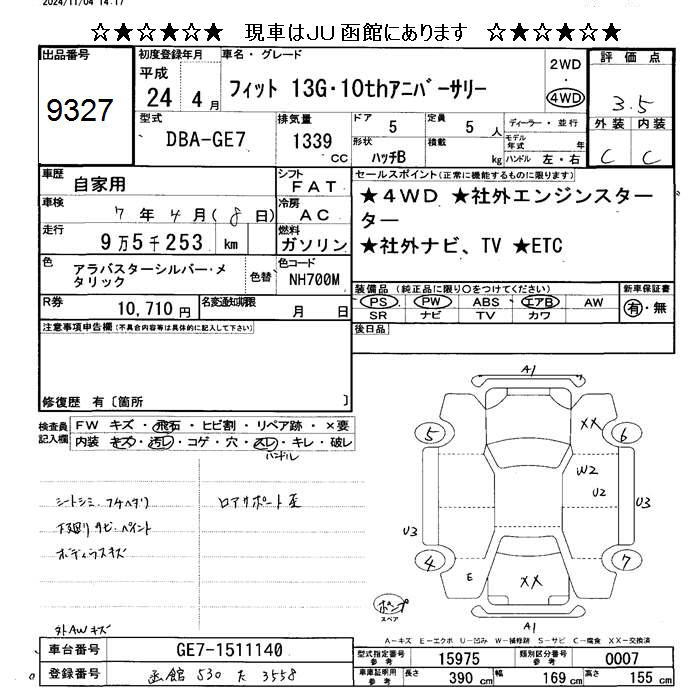 2024/11/04 14:17
☆★☆★☆★ 現車はJU函館にあります ☆★☆★☆★
出品番号
9327
初度登録年月
平成
24 4 月
車名・グレード
フィット 13G・10thアニバーサリー
2WD
・
4WD
評価点
3.5
外装 内装
C C
型式
DBA-GE7
排気量
1339 cc
ドア 5
定員 5 人
形状 ハッチB
積載 kg
ディーラー・並行
モデル年式 年
ハンドル 左・右
車歴 自家用
シフト FAT
車検 7 年 4 月(8 日)
冷房 AC
走行 9万5千253 km
燃料 ガソリン
色 アラバスターシルバー・メタリック
色替
色コード NH700M
R券 10,710 円
名変通知期限 月 日
セールスポイント(正常に機能するものに限ります)
★4WD ★社外エンジンスター
ター
★社外ナビ、TV ★ETC
装備品 (純正品に限り○をつけてください)
PS PW ABS エアB AW
SR ナビ TV カワ
新車保証書
有・無
後日品
注意事項申告欄(不具合内容等は具体的に記入して下さい)
修復歴 有〔箇所 〕
検査員記入欄
FW キズ・飛石・ヒビ割・リペア跡・×要
内装 キズ・汚レ・コゲ・穴・スレ・キレ・破レ
ハンドル
シートシミ、フチヘタリ
ロアサポート歪
下廻りサビ・ペイント
ボディウスキズ
外AWキズ
A1
5
6
XX
W2
U2
U3
U3
4
7
E
XX
A1
スペア
A-キズ E-エクボ U-凹み W-補修跡 S-サビ C-腐食 XX-交換済
車台番号 GE7-1511140
登録番号 函館 530 た 3558
型式指定番号 参考 15975
類別区分番号 参考 0007
車庫証明用 参考 長さ 390 cm 幅 169 cm 高さ 155 cm